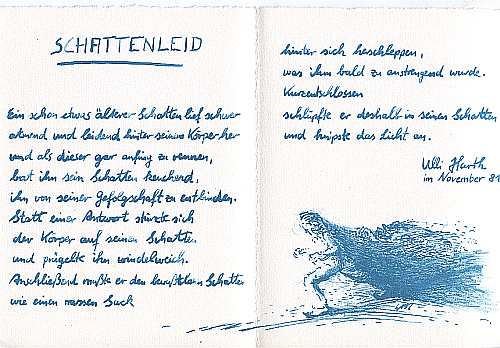 SCHATTENLEID
Ein schon etwas älterer Schatten lief schwer
atmend und leidend hinter seinem Körper her
und als dieser gar anfing zu rennen,
bat ihn sein Schatten keuchend,
ihn von seiner Gefolgschaft zu entbinden.
Statt einer Antwort stürzte sich
der Körper auf seinen Schatten
und prügelte ihn windelweich.
Anschließend mußte er den bewußtlosen Schatten
wie einen nassen Sack
hinter sich herschleppen,
was ihm bald zu anstrengend wurde.
Kurzentschlossen
schlüpfte er deshalb in seinen Schatten
und knipste das Licht an.
Ulli Harth
im November 81